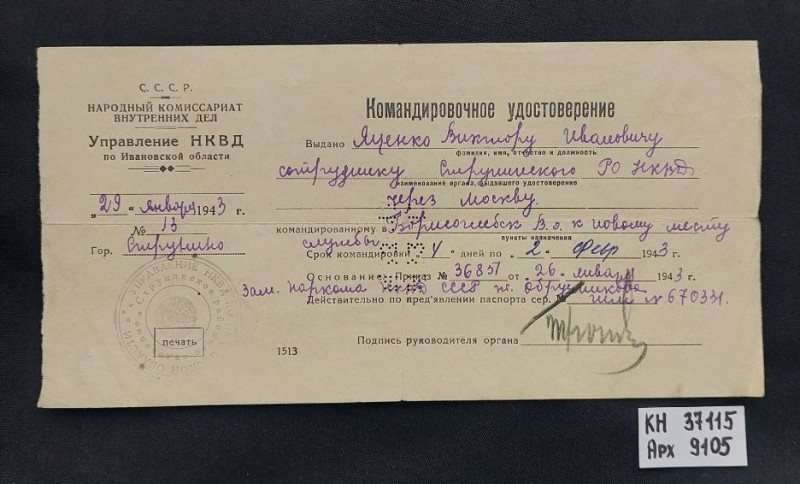 С. С. С. Р.
НАРОДНЫЙ КОМИССАРИАТ
ВНУТРЕННИХ ДЕЛ
Управление НКВД
по Ивановской области
„29 " января 1943 г.
№ 13
Гор. Струнино
УПРАВЛЕНИЕ НКВД
печать
Командировочное удостоверение
Выдано Яценко Виктору Ивановичу
фамилия, имя, отчество и должность
сотруднику Струнинского РО НКВД
наименование органа, выдавшего удостоверение
через Москву
командированному в Борисоглебск В.о. к новому месту
службы
пункты назначения
Срок командировки 4 дней по „ 2 " фев 1943 г.
Основание: Приказ № 36851 от „ 26 " января 1943 г.
Зам. наркома НКВД СССР т. Обручникова
Действительно по пред'явлении паспорта сер. № 670331.
Подпись руководителя органа
1513
КН 37115
Арх 9105